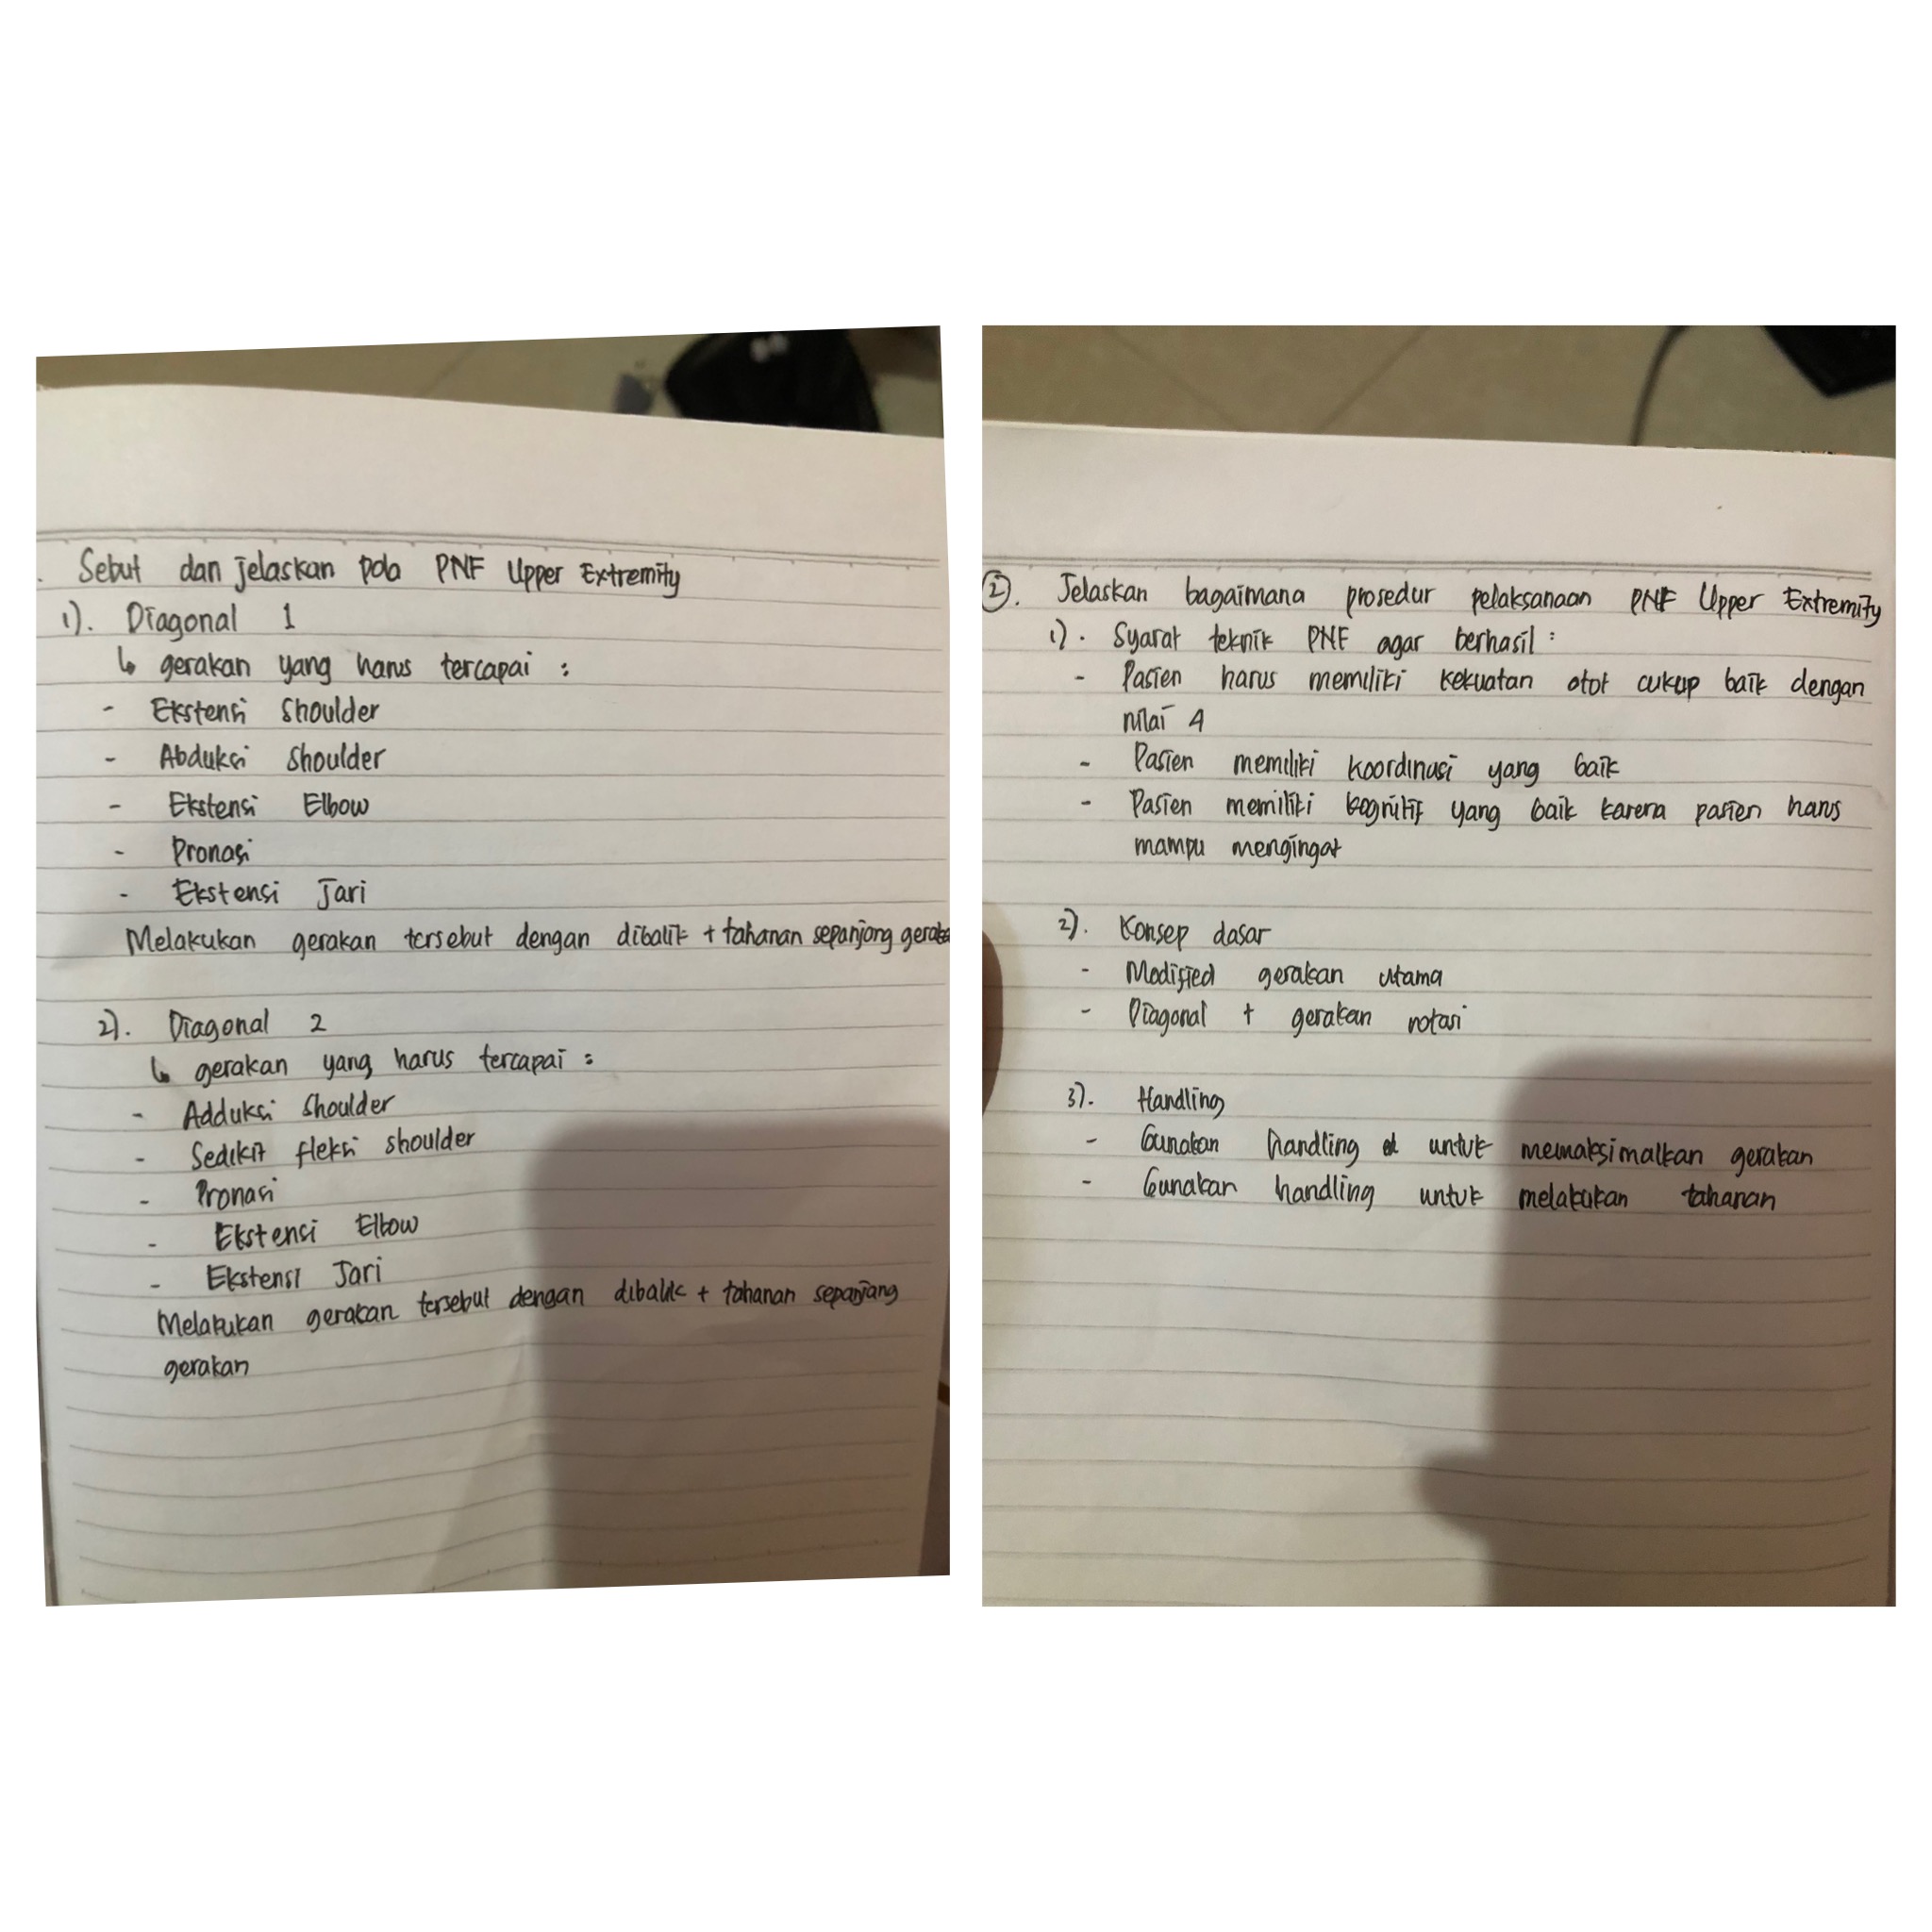 . Sebut dan jelaskan pola PNF Upper Extremity
1). Diagonal 1
↳ gerakan yang harus tercapai :
- Ekstensi Shoulder
- Abduksi Shoulder
- Ekstensi Elbow
- Pronasi
- Ekstensi Jari
Melakukan gerakan tersebut dengan dibalik + tahanan sepanjang gerakan
2). Diagonal 2
↳ gerakan yang harus tercapai :
- Adduksi Shoulder
- Sedikit fleksi shoulder
- Pronasi
- Ekstensi Elbow
- Ekstensi Jari
Melakukan gerakan tersebut dengan dibalik + tahanan sepanjang
gerakan
②. Jelaskan bagaimana prosedur pelaksanaan PNF Upper Extremity
1). Syarat teknik PNF agar berhasil :
- Pasien harus memiliki kekuatan otot cukup baik dengan
nilai 4
- Pasien memiliki koordinasi yang baik
- Pasien memiliki kognitif yang baik karena pasien harus
mampu mengingat
2). Konsep dasar
- Modified gerakan utama
- Diagonal + gerakan rotasi
3). Handling
- Gunakan handling untuk memaksimalkan gerakan
- Gunakan handling untuk melakukan tahanan